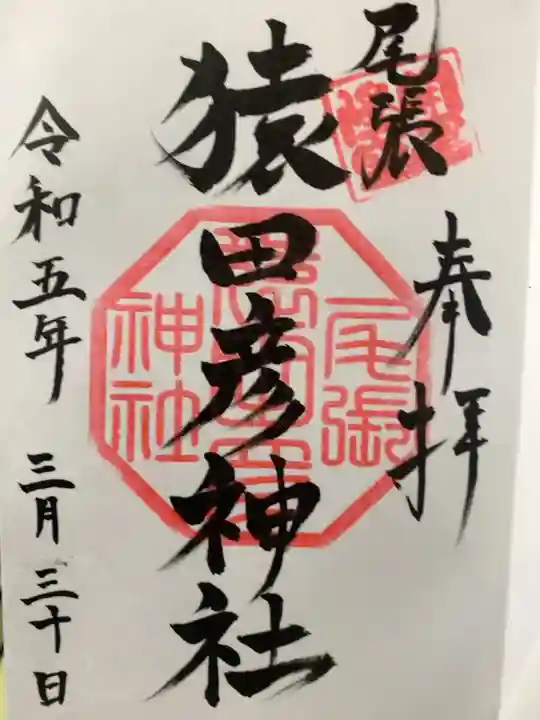 尾張
奉拝
猿田彦神社
令和五年 三月三十日
尾張
猿田彦
神社